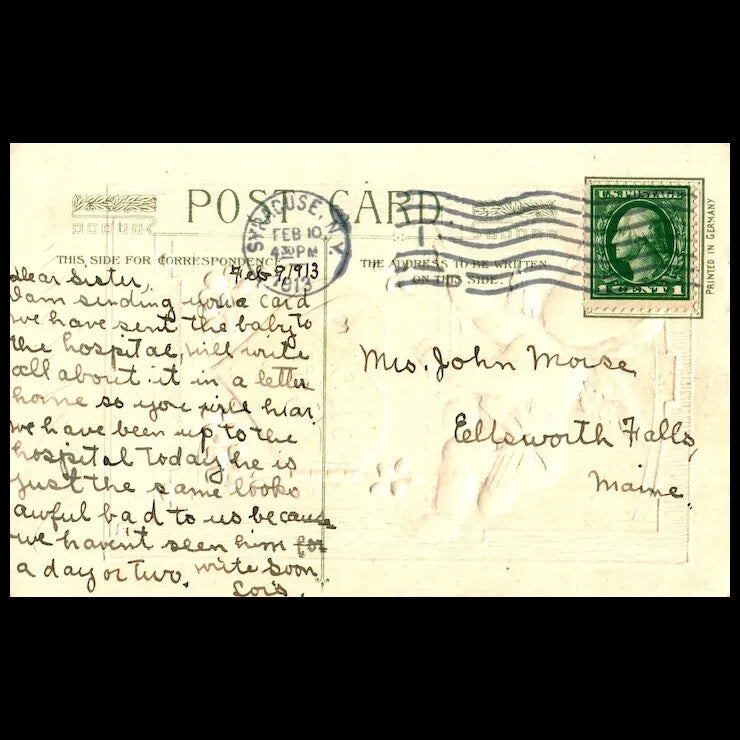 POST CARD
SYRACUSE, N.Y.
FEB 10
4 30 PM
1913
U.S. POSTAGE
1 CENT 1
PRINTED IN GERMANY
THIS SIDE FOR CORRESPONDENCE
THE ADDRESS TO BE WRITTEN
ON THIS SIDE.
Feb 9, 1913
Dear Sister,
I am sending you a card
we have sent the baby to
the hospital, will write
all about it in a letter
home so you will hear,
we have been up to the
hospital today he is
just the same looks
awful bad to us because
we haven't seen him for
a day or two. write soon
Lois.
Mrs. John Morse
Ellsworth Falls,
Maine.